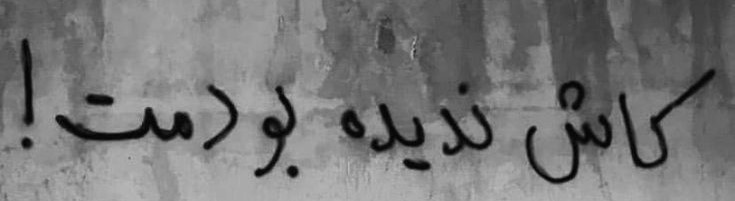 کاش ندیده بودمت!